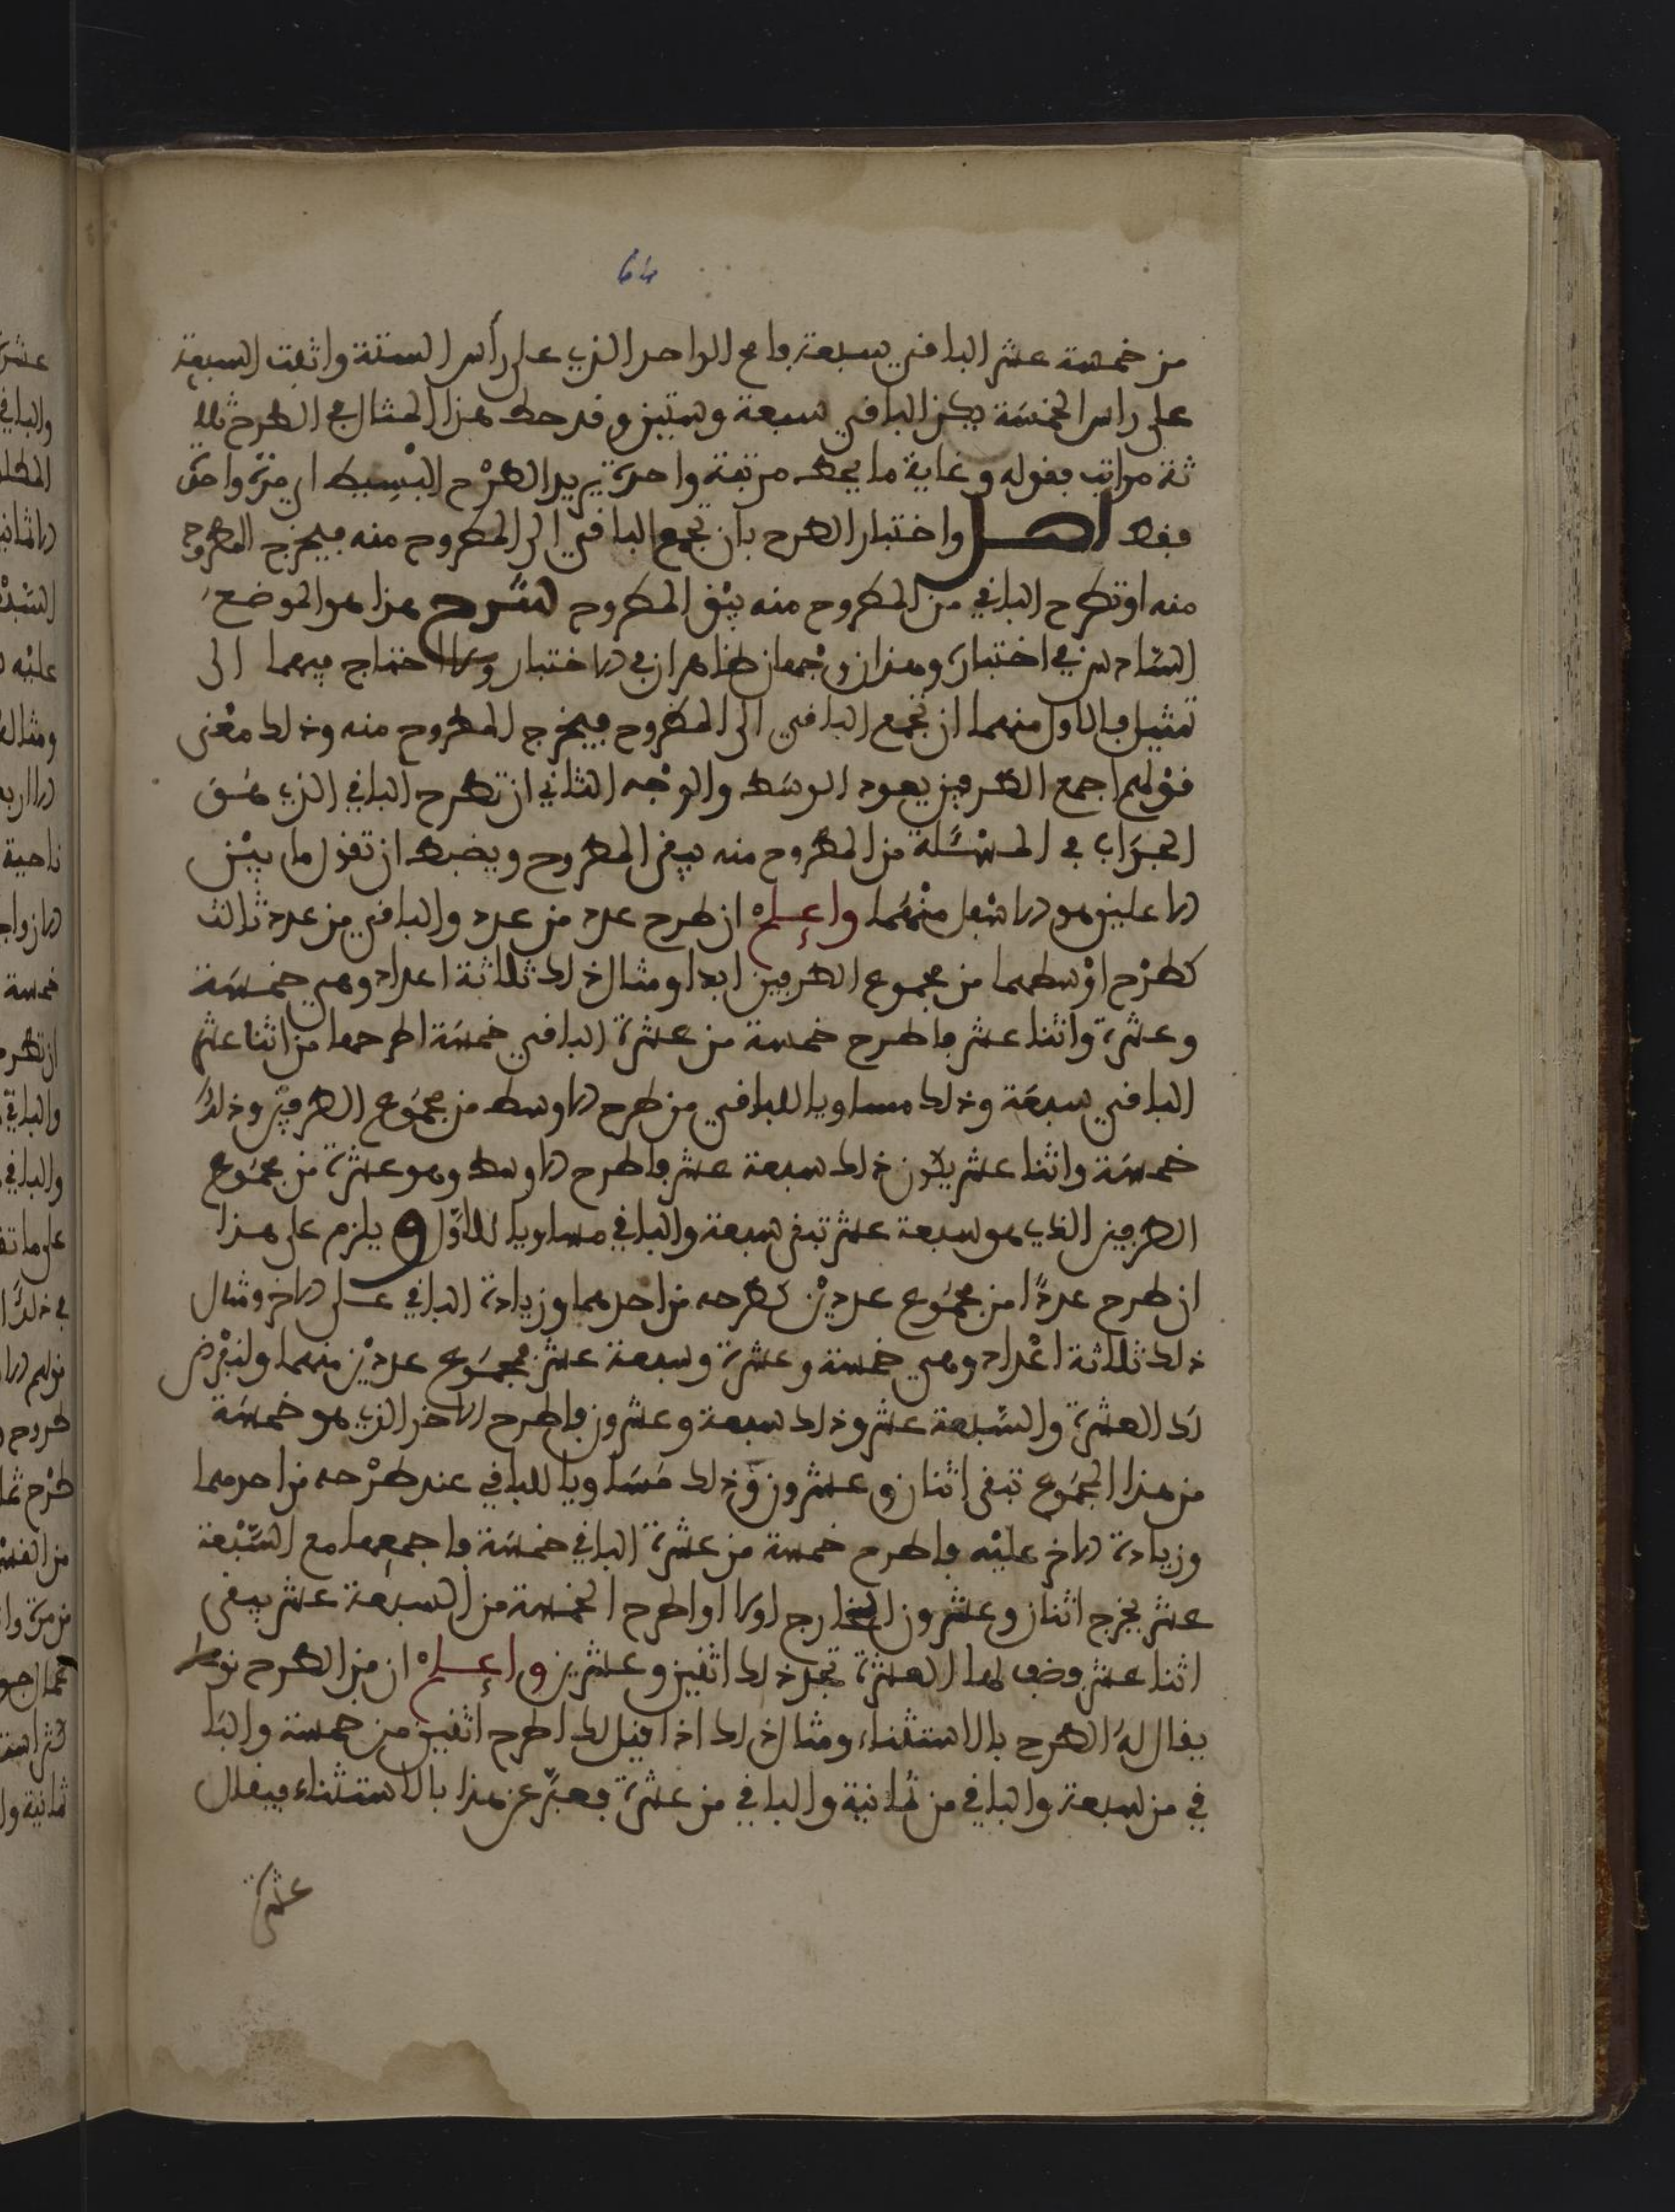 64
من خمسة عشر الباقي سبعة فامح الواحد الذي على رأس الستة واثبت السبعة
على راس الخمسة يكن الباقي سبعة وستين وقد حط هذا المثال في الطرح ثلا
ثة مراتب فقوله وغاية ما يحط مرتبة واحدة يريد الطرح البسيط اي مرة واحدة
فقط اصل واختبار الطرح بان تجمع الباقي الى المطروح منه فيخرج المطروح
منه او تطرح الباقي من المطروح منه يبق المطروح شرح هذا هو الموضع
السادس في اختباره وهذان وجهان ظاهران في الاختبار ولا احتاج فيهما الى
تمثيل فالاول منهما ان تجمع الباقي الى المطروح فيخرج المطروح منه وذلك معنى
قولهم اجمع الطرفين يعود الوسط والوجه الثاني ان تطرح الباقي الذي هو
الجواب في المسئلة من المطروح منه يبقى المطروح ويضبط ان تقول ما بين
الاعلين هو الاسفل منهما واعلم ان طرح عدد من عدد والباقي من عدد ثالث
كطرح اوسطهما من مجموع الطرفين ابدا ومثال ذلك ثلاثة اعداد وهي خمسة
وعشرة واثنا عشر فاطرح خمسة من عشرة الباقي خمسة اطرحها من اثنا عشر
الباقي سبعة وذلك مساويا للباقي من طرح الاوسط من مجموع الطرفين وذلك
خمسة واثنا عشر يكون ذلك سبعة عشر فاطرح الاوسط وهو عشرة من مجموع
الطرفين الذي هو سبعة عشر تبقى سبعة والباقي مساويا للاول ويلزم على هذا
ان طرح عددا من مجموع عددين كطرحه من احدهما وزيادة الباقي على الاخر ومثال
ذلك ثلاثة اعداد وهي خمسة وعشرة وسبعة عشر مجموع عددين منهما ولنفرض
ذلك العشرة والسبعة عشر وذلك سبعة وعشرون فاطرح الاخر الذي هو خمسة
من هذا المجموع تبقى اثنان وعشرون وذلك مساويا للباقي عند طرحه من احدهما
وزيادة الاخر عليه فاطرح خمسة من عشرة الباقي خمسة فاجمعها مع السبعة
عشر يخرج اثنان وعشرون الخارج اولا او اطرح الخمسة من السبعة عشر يبقى
اثنا عشر وضف لها العشرة تجد ذلك اثنين وعشرين واعلم ان من الطرح نوعا
يقال له الطرح بالاستثناء ومثال ذلك اذا قيل لك اطرح اثنين من خمسة والبا
قي من سبعة والباقي من ثمانية والباقي من عشرة فعبر عن هذا بالاستثناء فيقال
عشرة